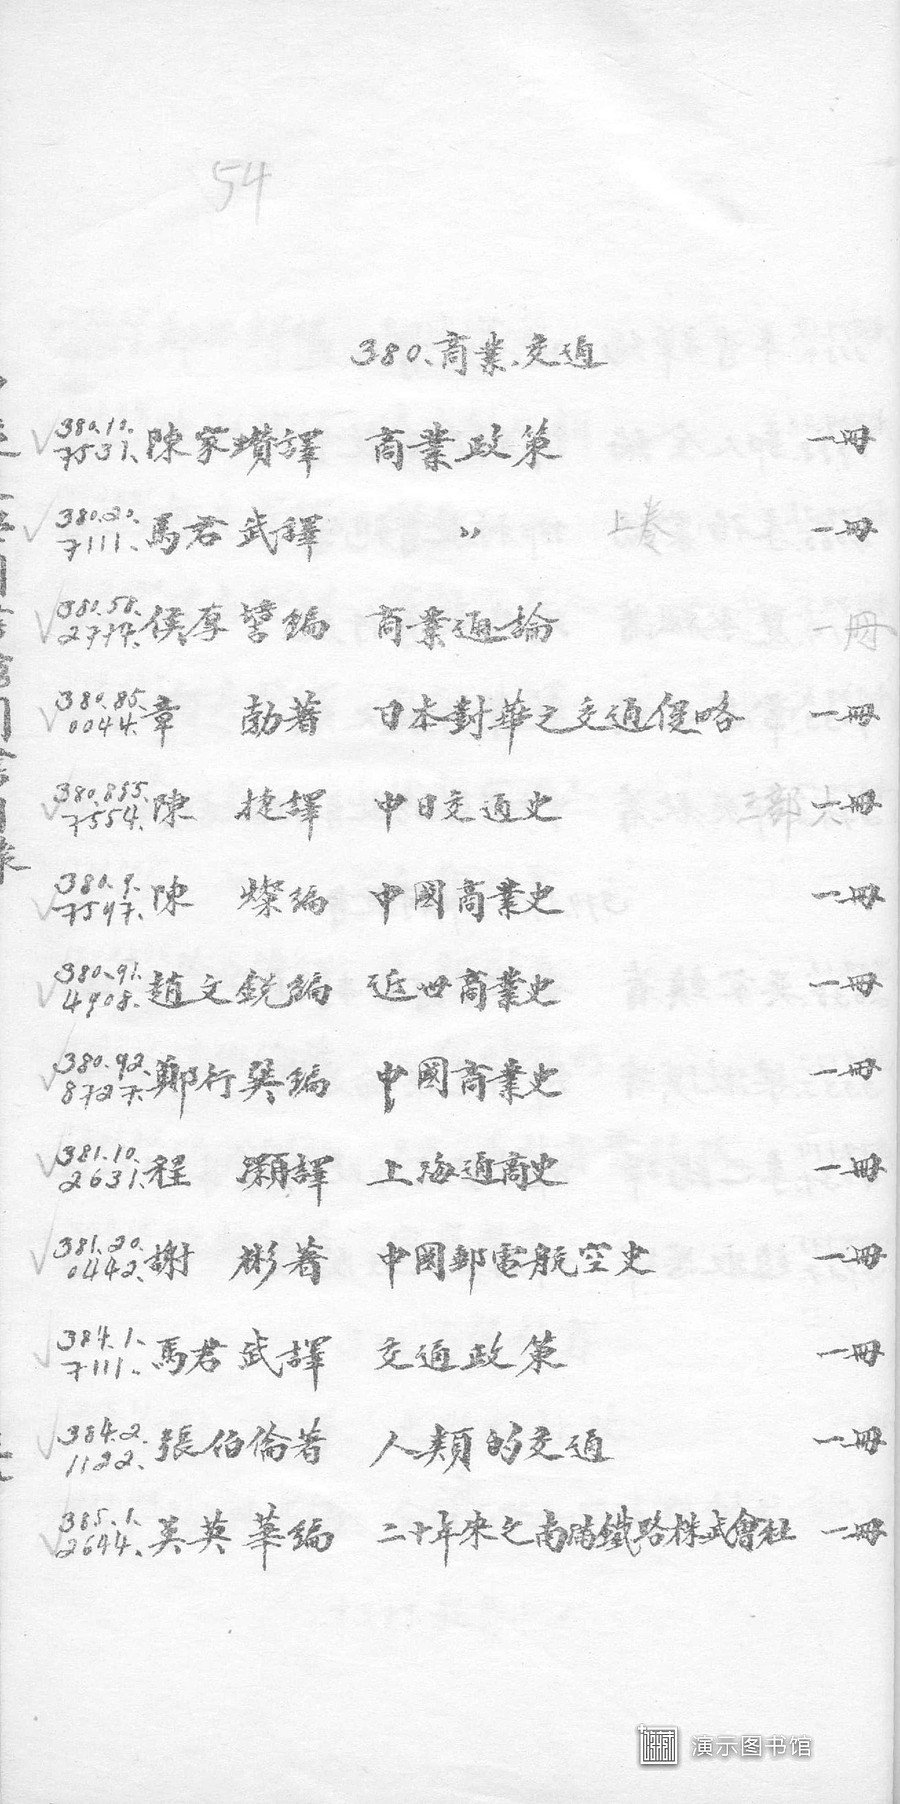 54
380、商業、交通
380.10. 7531. 陳家瓚譯 商業政策 一冊
380.20. 7111. 馬君武譯 〃 上卷 一冊
380.58. 2714. 侯厚培編 商業通論 一冊
380.85. 0044. 章勃著 日本對華之交通侵略 一冊
380.855. 7554. 陳捷譯 中日交通史 三部 六冊
380.9. 7597. 陳燦編 中國商業史 一冊
380.91. 4908. 趙文銳編 近世商業史 一冊
380.92. 8727. 鄭行巽編 中國商業史 一冊
381.10. 2631. 程灝譯 上海通商史 一冊
381.20. 0442. 謝彬著 中國郵電航空史 一冊
384.1. 7111. 馬君武譯 交通政策 一冊
384.2. 1122. 張伯倫著 人類的交通 一冊
385.1. 2644. 吴英華編 二十年來之南滿鐵路株式會社 一冊
演示图书馆